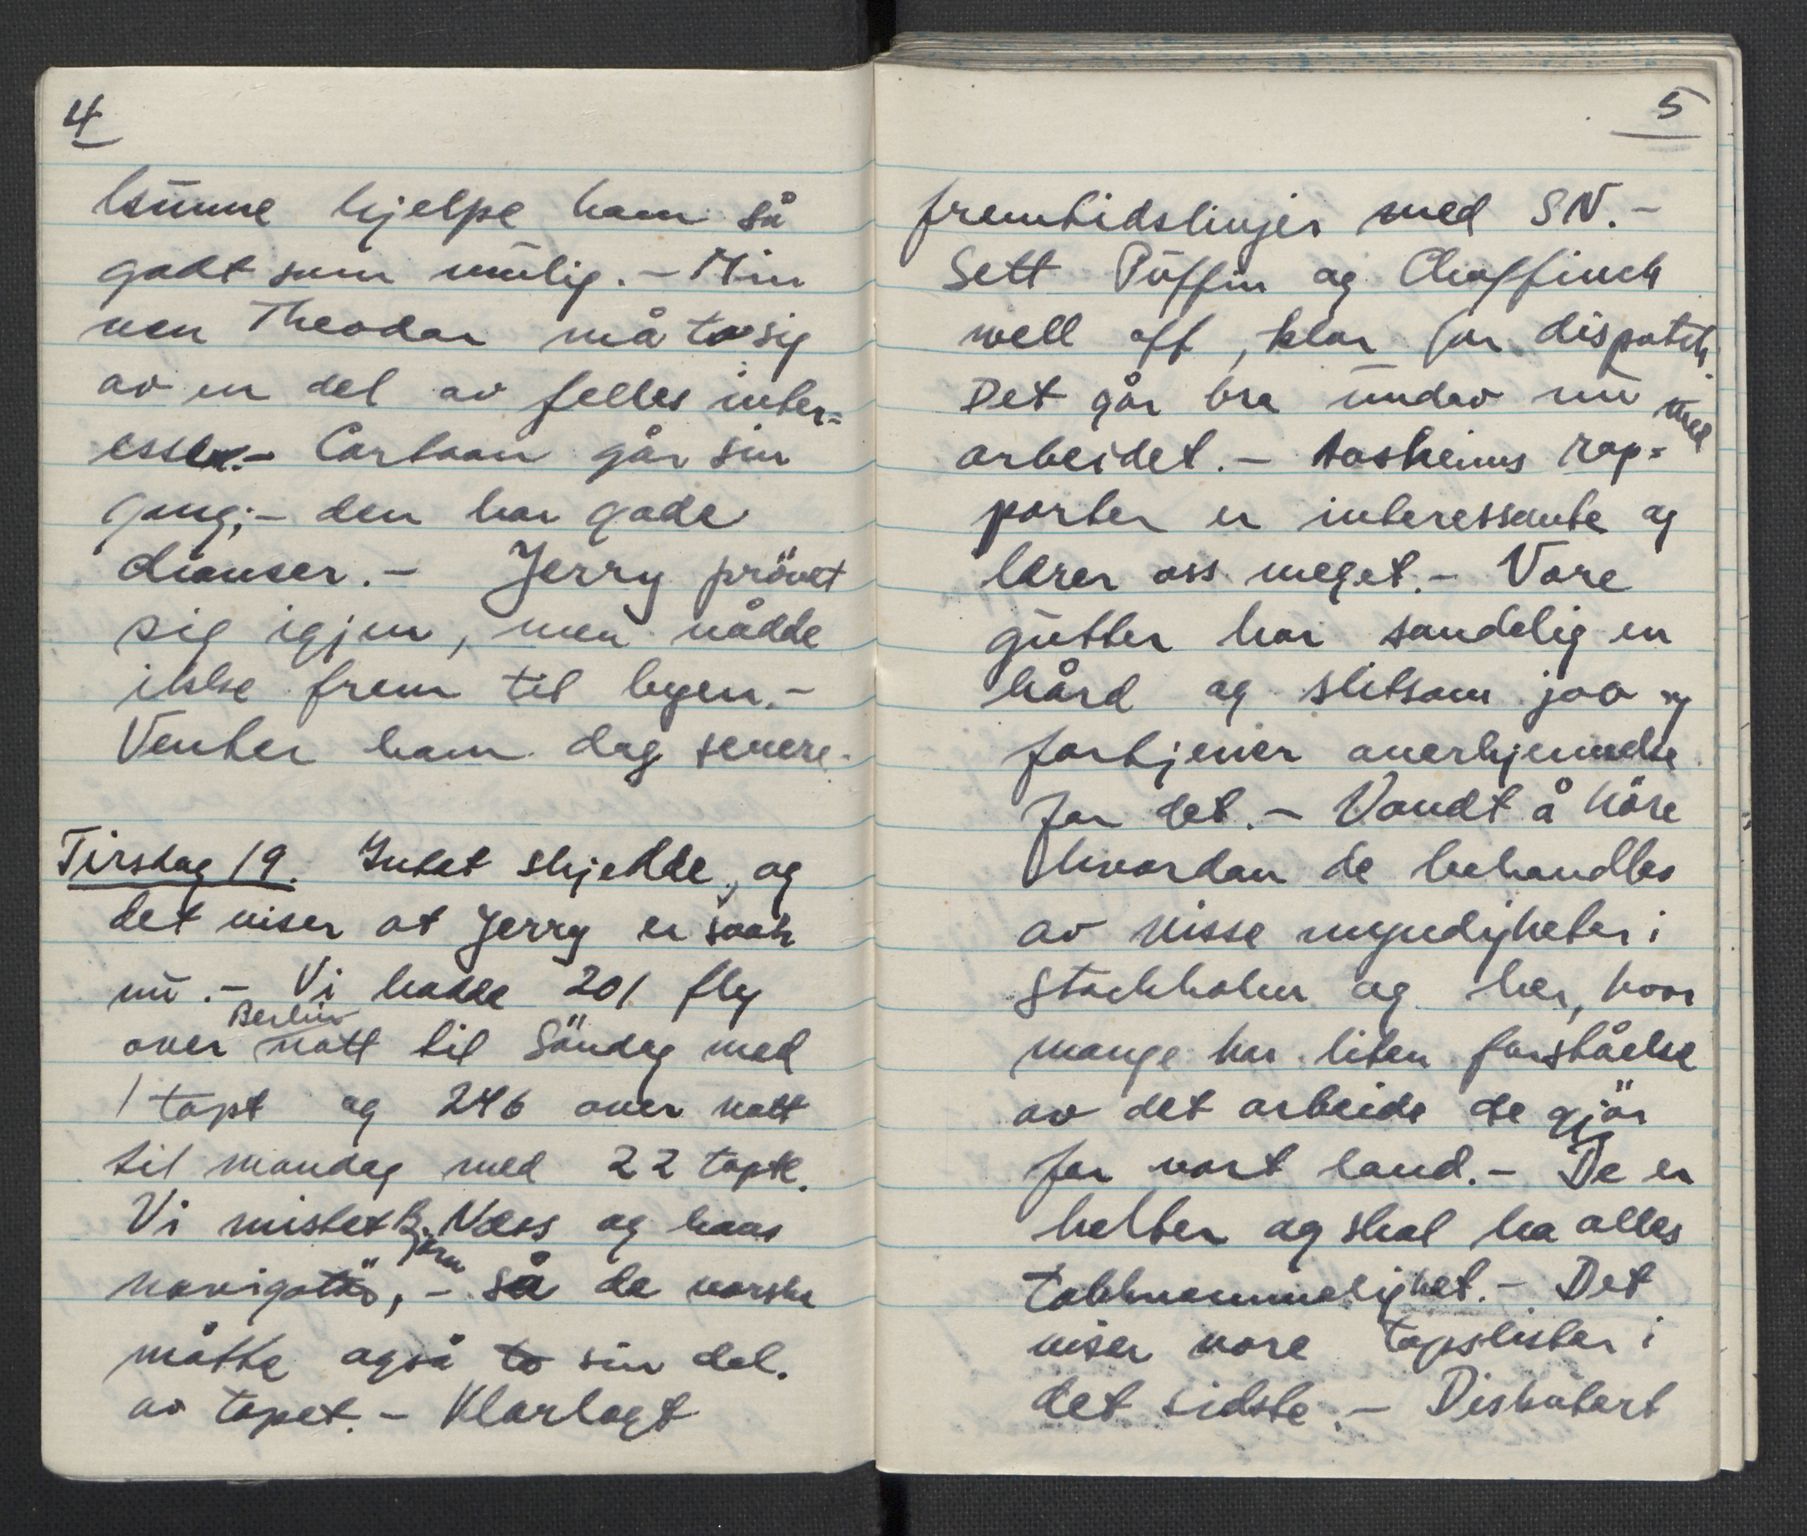 4
kunne hjelpe ham så
godt som mulig. - Min
ven Theodor må ta sig
av en del av felles inter=
esser. - Cartoon går sin
gang; - den har gode
chanser. - Jerry prövet
sig igjen, men nådde
ikke frem til byen. -
Venter ham dog senere.
Tirsdag 19. Intet skjedde, og
det viser at Jerry er svak
nu. - Vi hadde 201 fly
over Berlin natt til Söndag med
1 tapt og 246 over natt
til mandag med 22 tapt.
Vi mistet Bjørn Næss og hans
navigatör, - så de norske
måtte også ta sin del.
av tapet. - Klarlagt
5
fremtidslinjer med SN. -
Sett Puffin og Chaffinch
well off, klar for dispatch.
Det går bra undav nu med
arbeidet. - Aasheims rap=
porter er interessante og
lærer oss meget. - Vore
gutter har sandelig en
hård og slitsom job og
fortjener anerkjennelse
for det. - Vondt å höre
hvordan de behandles
av visse myndigheter i
Stockholm og her, hvor
mange har liten forståelse
av det arbeide de gjör
for vort land. - De er
helter og skal ha alles
takknemmelighet. - Det
viser vore tapslister i
det sidste. - Diskutert